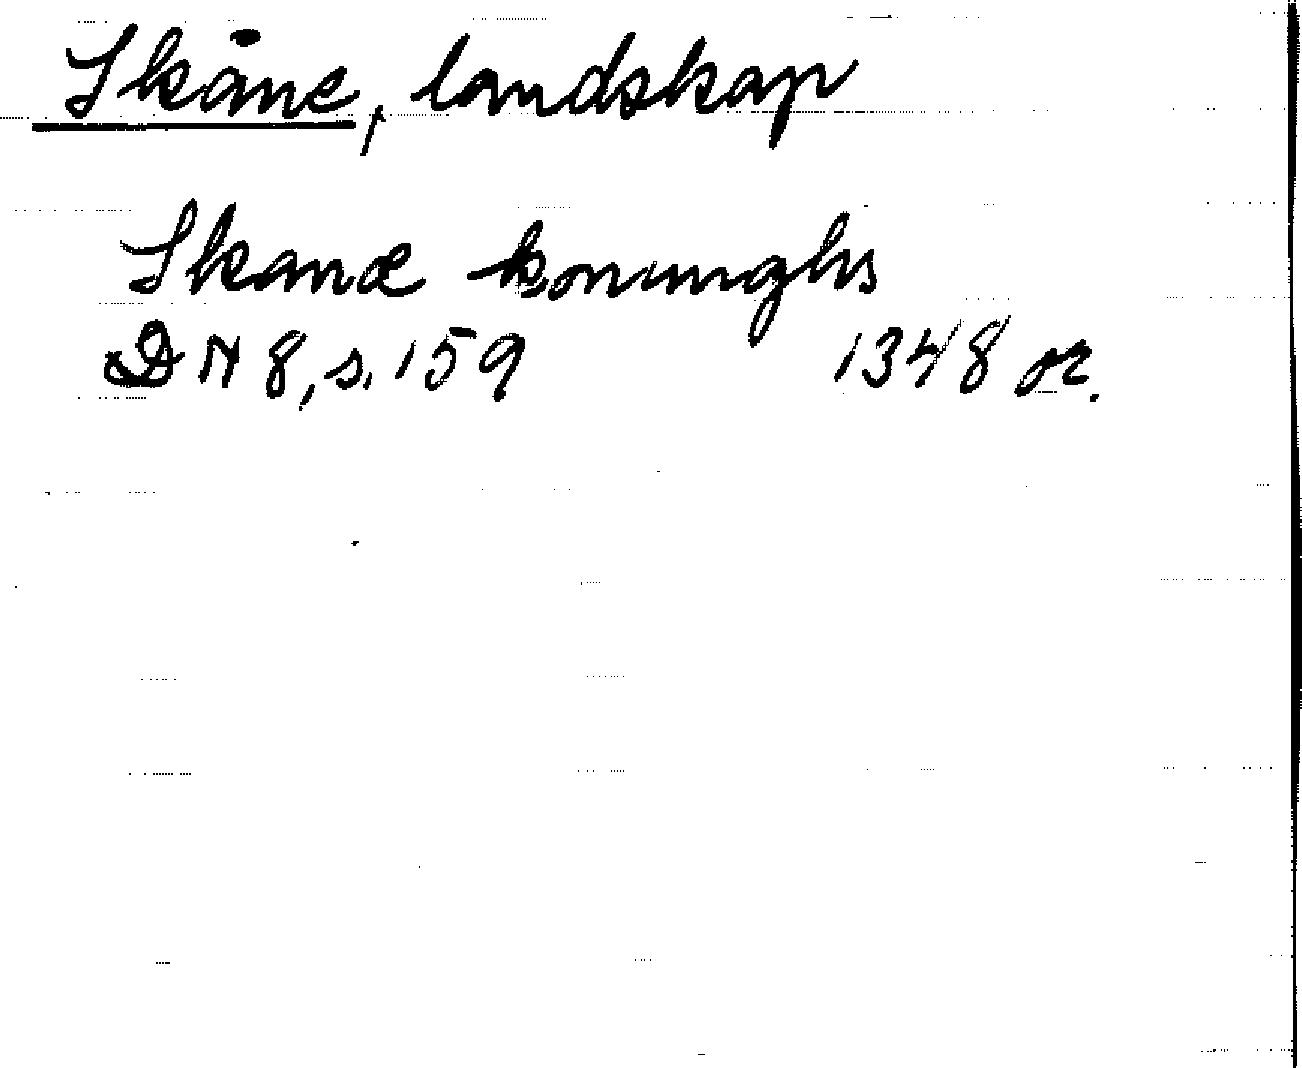 Skåne, landskap
Skanæ konunghs
DN 8, s. 159 1348 or.